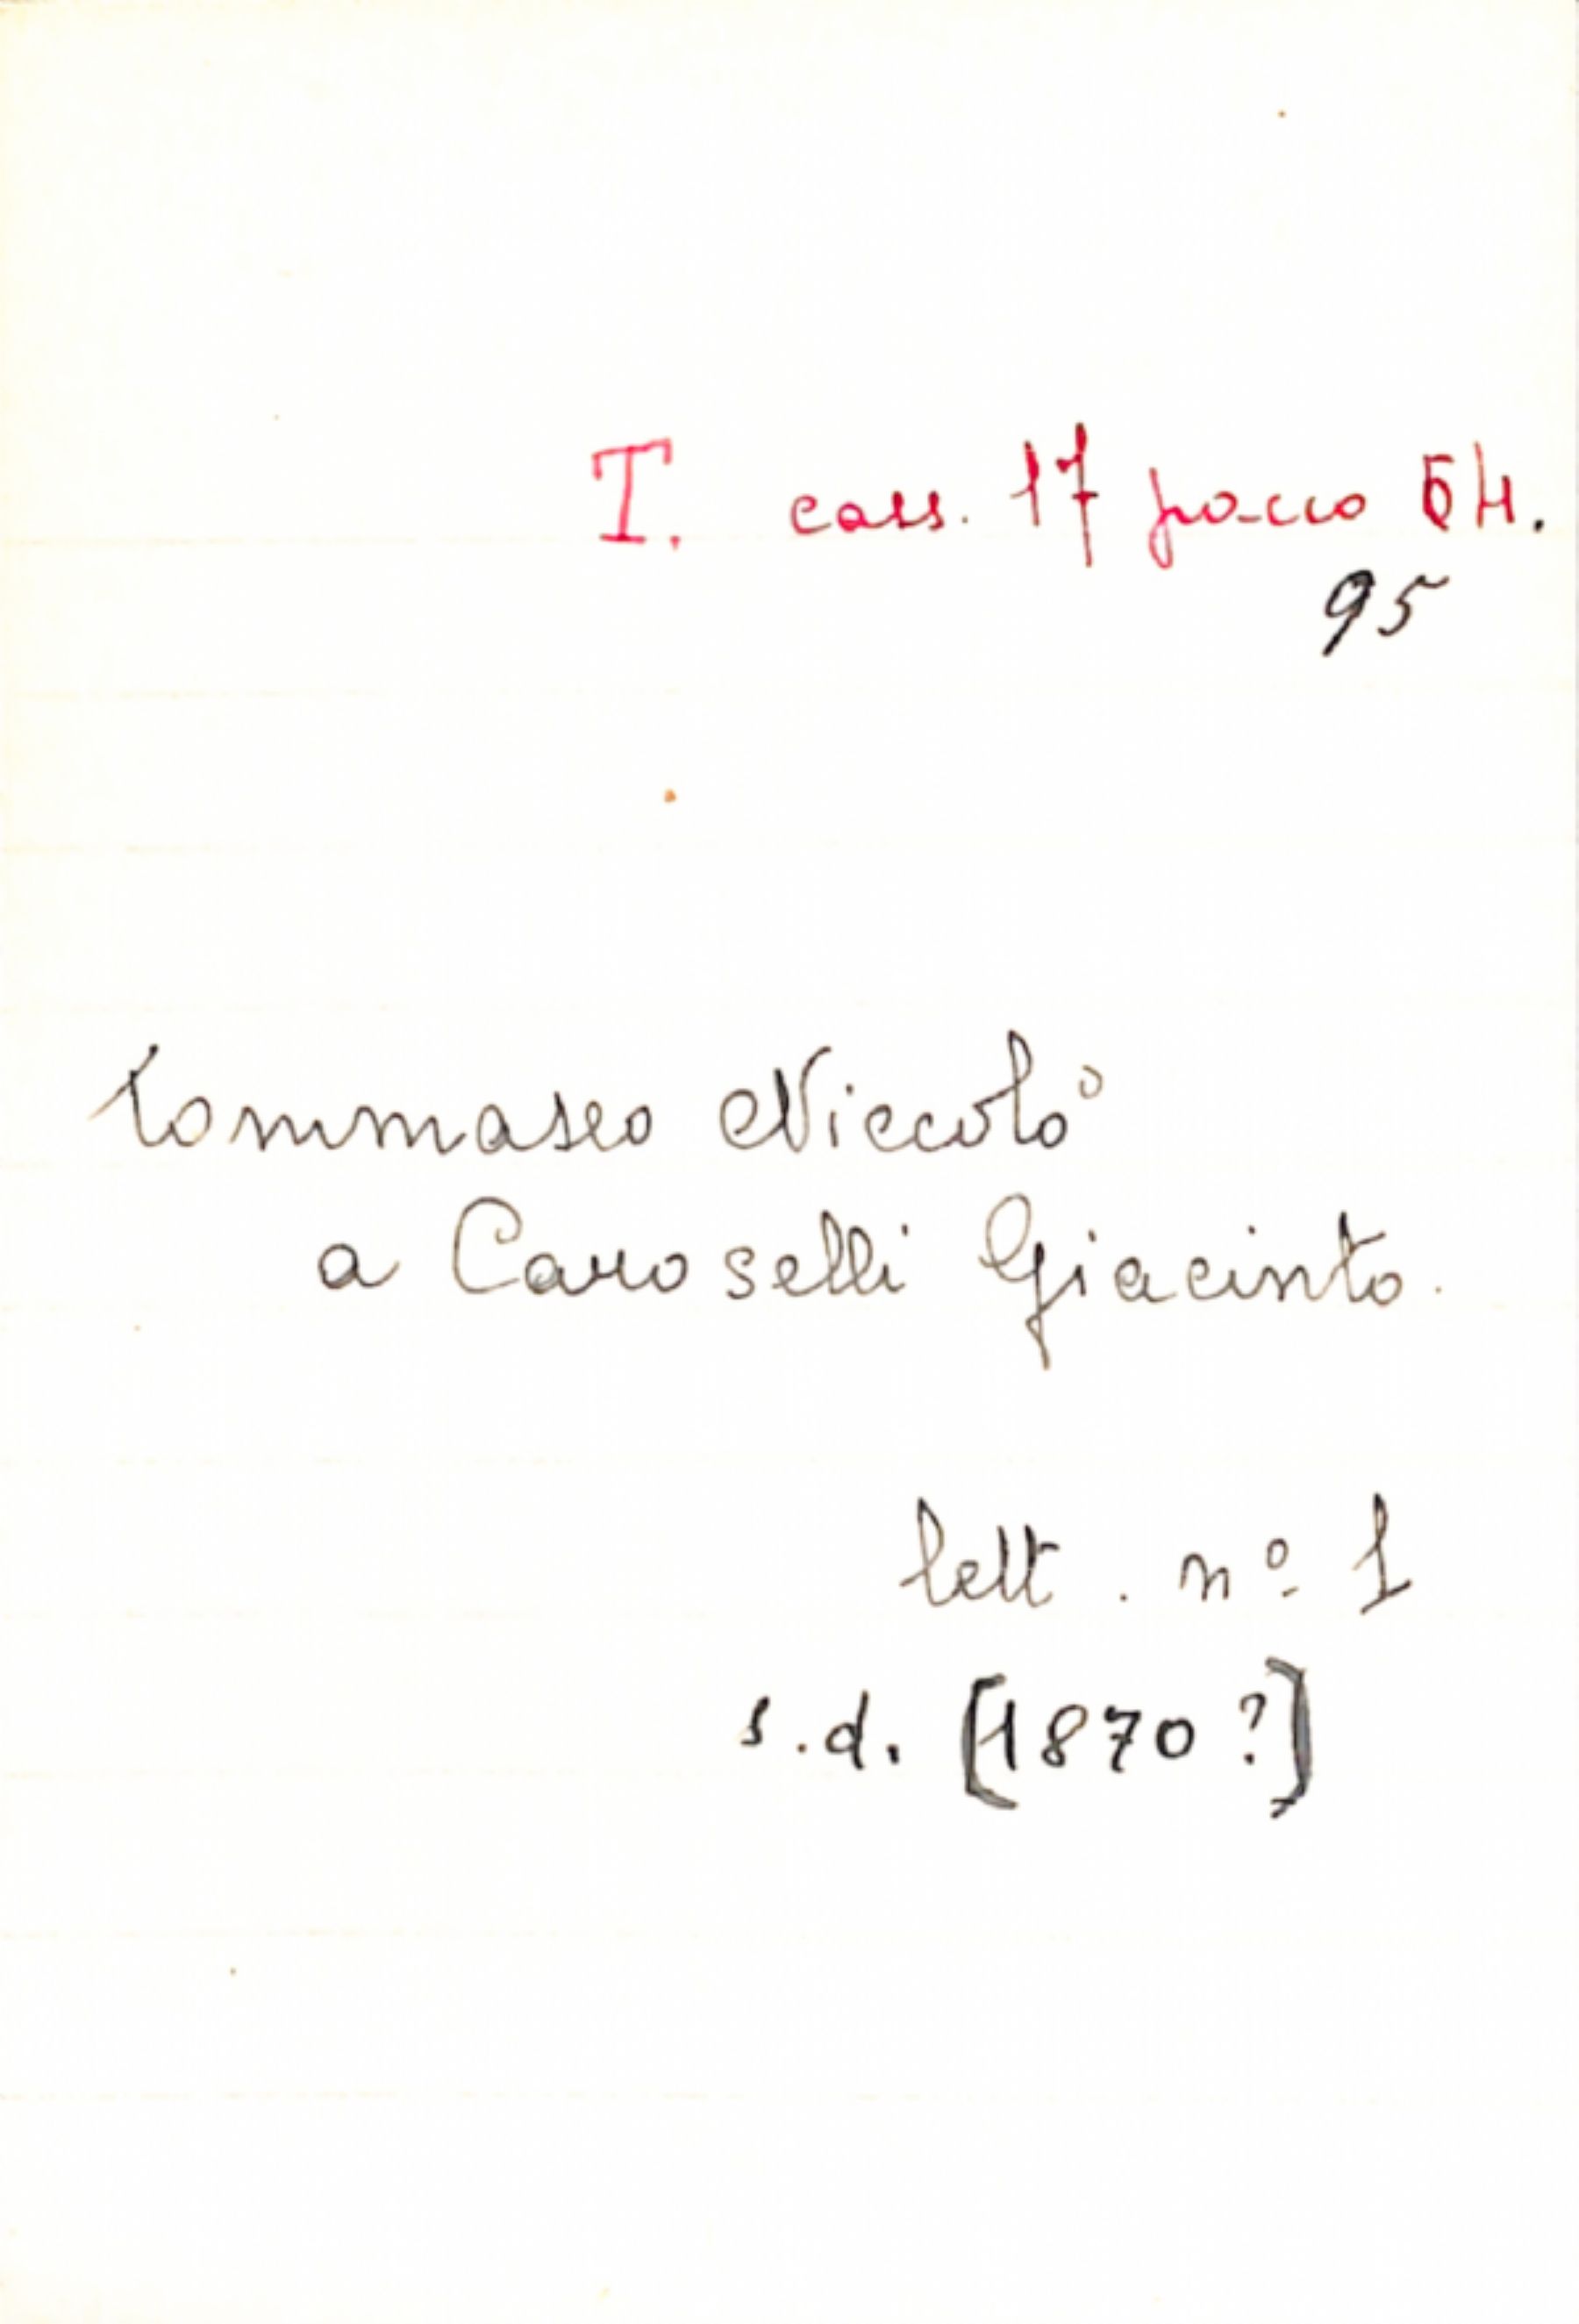 T. cass. 17 pacco 64.
95
Tommaseo Niccolò
a Caroselli Giacinto.
lett. nº 1
s.d. [1870?]